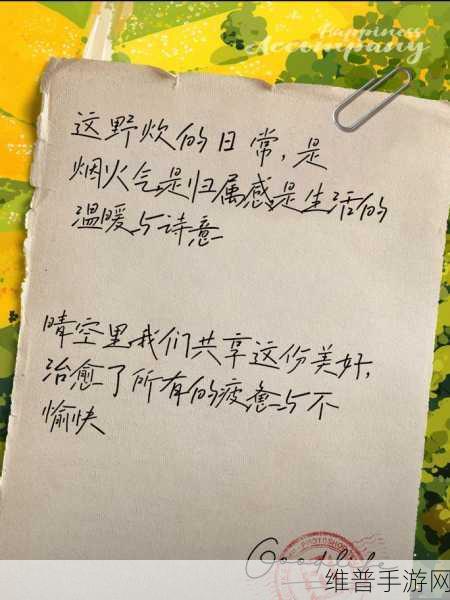 Happiness
Accompany
这野炊的日常,是
烟火气是归属感是生活的
温暖与诗意
晴空里我们共享这份美好,
治愈了所有的疲惫与不
愉快
Good life
维普手游网